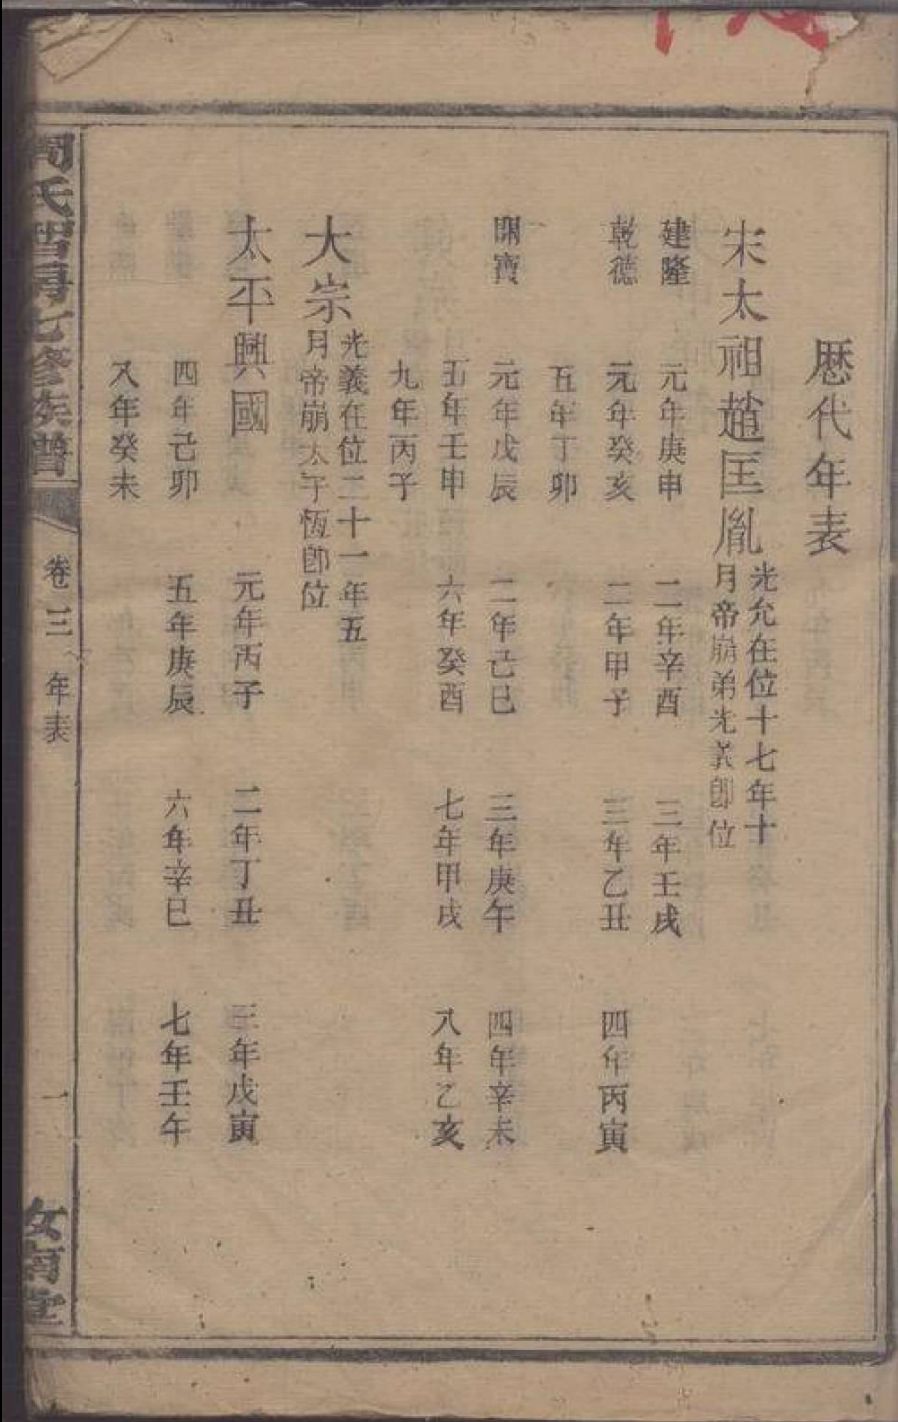 歷代年表
宋太祖趙匡胤
光允在位十七年十
月帝崩弟光義卽位
建隆 元年庚申 二年辛酉 三年壬戌
乾德 元年癸亥 二年甲子 三年乙丑 四年丙寅
五年丁卯
開寶 元年戊辰 二年己巳 三年庚午 四年辛未
五年壬申 六年癸酉 七年甲戌 八年乙亥
九年丙子
太宗
光義在位二十一年五
月帝崩太子恆卽位
太平興國 元年丙子 二年丁丑 三年戊寅
四年己卯 五年庚辰 六年辛巳 七年壬午
八年癸未
周氏智房七修族譜 卷三 年表 一 汝南堂